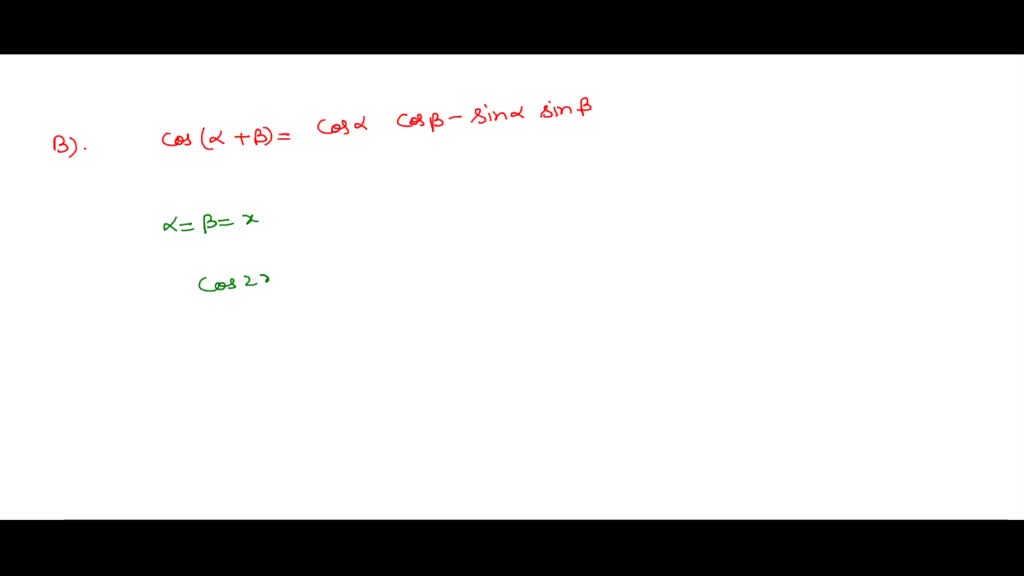 B). cos (α + β) = cosα cosβ - sinα sinβ
α = β = x
cos 2